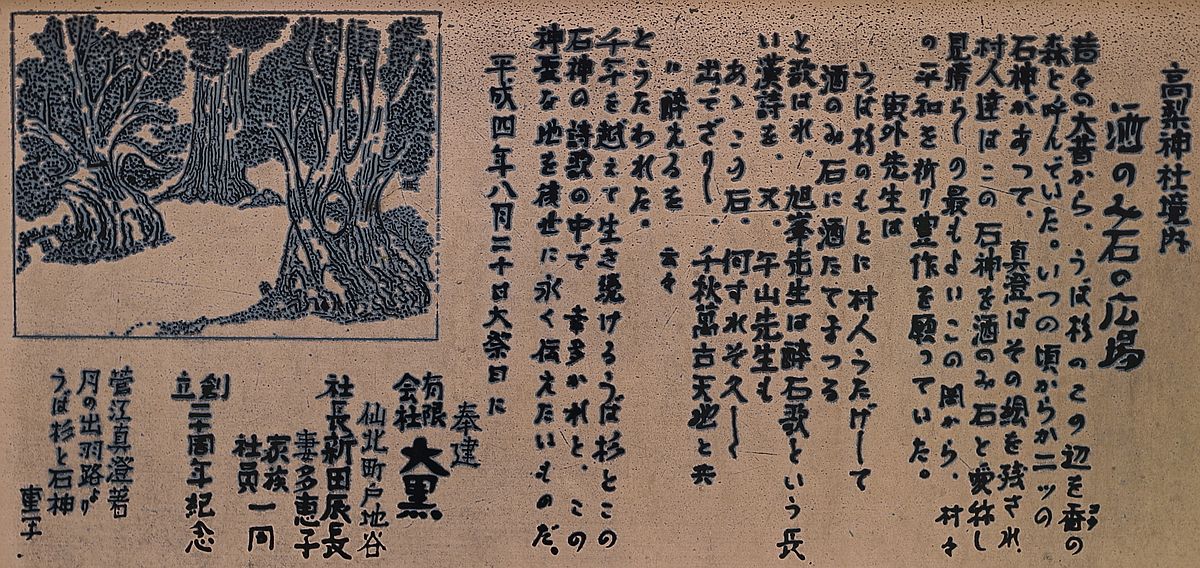 高梨神社境内
酒のみ石の広場
昔々の大昔から、うば杉のこの辺を香の
森と呼んでいた。いつの頃からか二ッの
石神があって、真澄はその絵を残され、
村人達はこの石神を酒のみ石と愛称し
見晴らしの最もよいこの岡から、村々
の平和を祈り豊作を願っていた。
寅外先生は
うば杉のもとに村人うたげして
酒のみ石に酒たてまつる
と歌はれ、旭峯先生は酔石歌という長
い漢詩を、又、午山先生も
あゝこの石、何すれぞ久しく
出でざりし、千秋萬古天地と共
に酔えるを 云々
とうたわれた。
千年を越えて生き続けるうば杉とこの
石神の詩歌の中で 幸多かれと、この
神聖な地を後世に永く伝えたいものだ。
平成四年八月二十日大祭日に
奉建
仙北町戸地谷
有限会社 大黒
社長新田辰長
妻多恵子
家族
社員一同
創立二十周年紀念
菅江真澄著
月の出羽路より
うば杉と石神